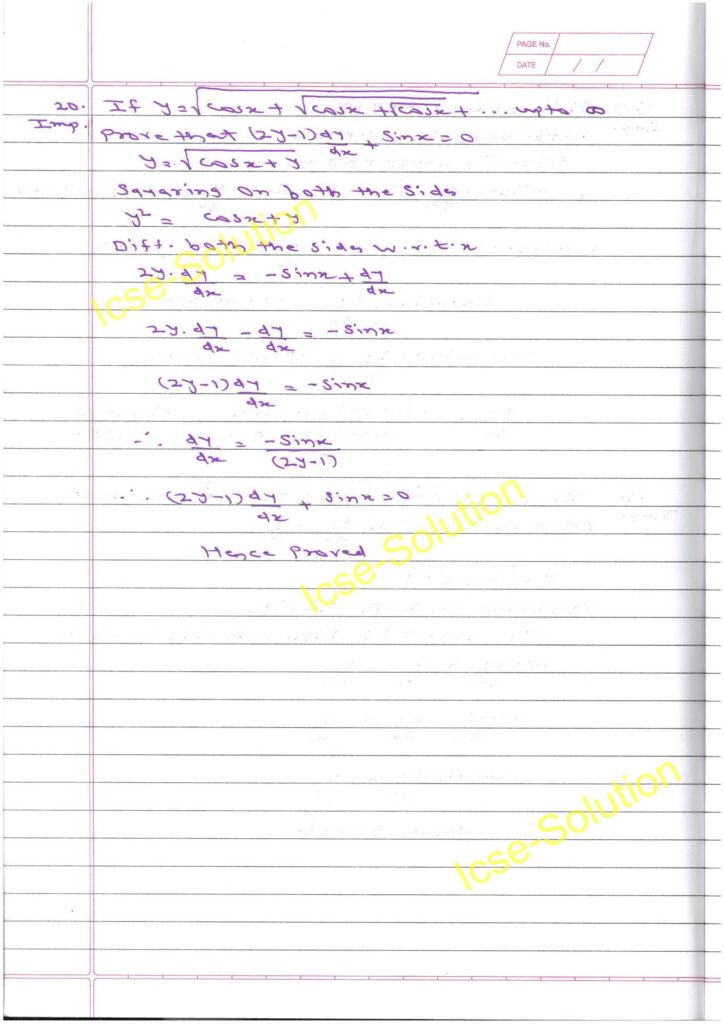 PAGE No.
DATE / /
20. If y = √cosx + √cosx + √cosx + ... upto ∞
Imp. Prove that (2y-1) dy/dx + sinx = 0
y = √cosx + y
Squaring on both the sides
y² = cosx + y
Diff. both the sides w.r.t. x
2y. dy/dx = -sinx + dy/dx
2y. dy/dx - dy/dx = -sinx
(2y-1) dy/dx = -sinx
∴ dy/dx = -sinx/(2y-1)
∴ (2y-1) dy/dx + sinx = 0
Hence Proved
Icse-Solution
Icse-Solution
Icse-Solution